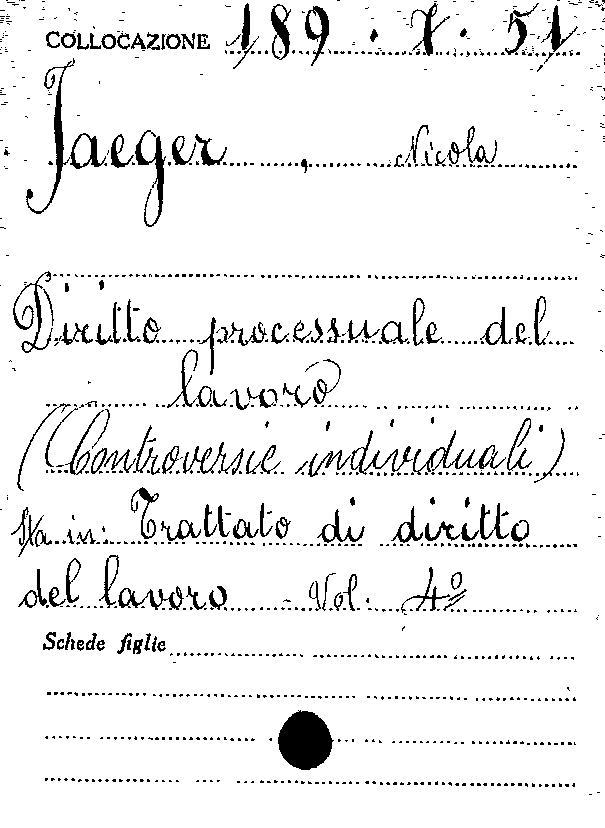 COLLOCAZIONE 189. 7. 51
Jaeger, Nicola
Diritto processuale del
lavoro
(Controversie individuali)
Sta in: Trattato di diritto
del lavoro - Vol. 4º
Schede figlie